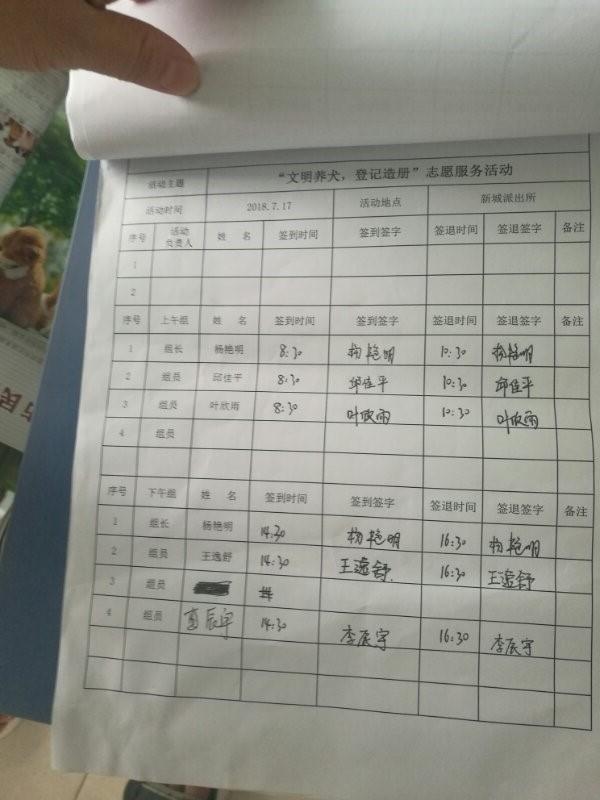 活动主题 “文明养犬，登记造册”志愿服务活动
活动时间 2018.7.17 活动地点 新城派出所
序号 活动负责人 姓 名 签到时间 签到签字 签退时间 签退签字 备注
1
2
序号 上午组 姓 名 签到时间 签到签字 签退时间 签退签字 备注
1 组长 杨艳明 8:30 杨艳明 10:30 杨艳明
2 组员 邱佳平 8:30 邱佳平 10:30 邱佳平
3 组员 叶欣雨 8:30 叶欣雨 10:30 叶欣雨
4 组员
序号 下午组 姓 名 签到时间 签到签字 签退时间 签退签字 备注
1 组长 杨艳明 14:30 杨艳明 16:30 杨艳明
2 组员 王逸舒 14:30 王逸舒 16:30 王逸舒
3 组员
4 组员 辰宇 14:30 李辰宇 16:30 李辰宇
民